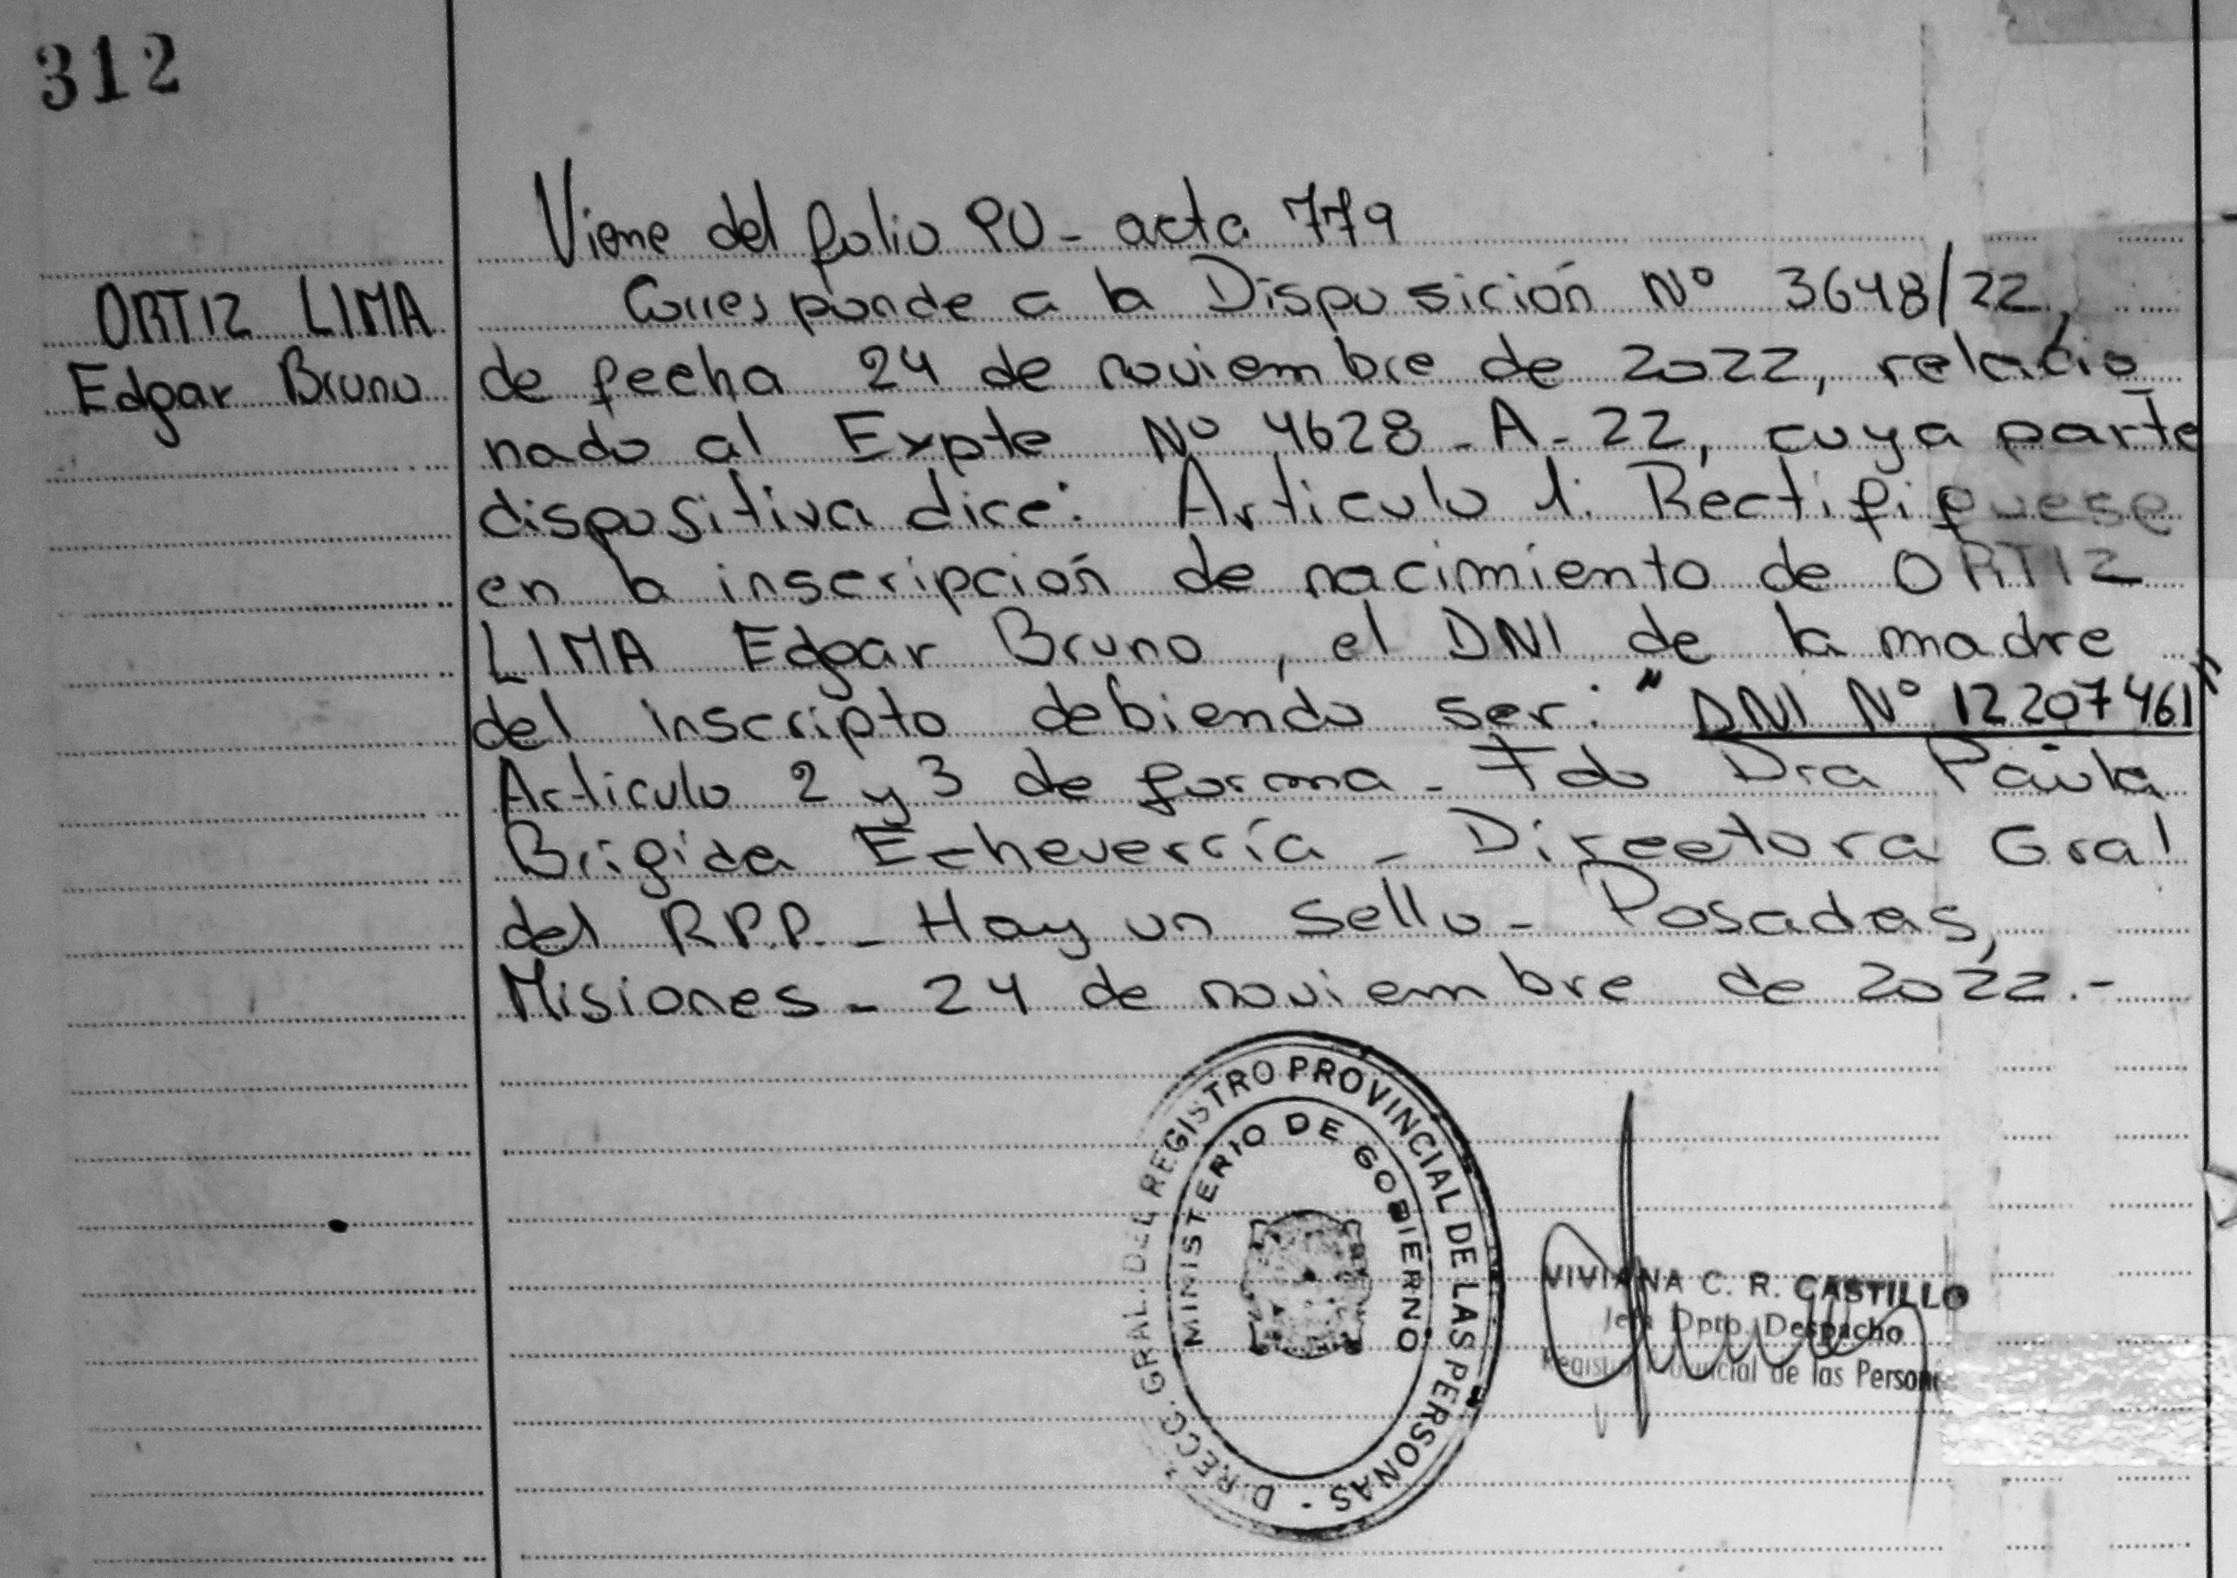 312
Viene del folio 90 - acta 779
ORTIZ LIMA
Edgar Bruno
Corresponde a la Disposición Nº 3648/22,
de fecha 24 de noviembre de 2022, relacio_
nado al Expte Nº 4628 - A - 22, cuya parte
dispositiva dice: Articulo 1: Rectifiquese
en la inscripción de nacimiento de ORTIZ
LIMA Edgar Bruno, el DNI de la madre
del inscripto debiendo ser: "DNI Nº 12207461"
Articulo 2 y 3 de forma - Fdo Dra Paula
Brigida Echeverría - Directora Gral
del RPP. - Hay un sello - Posadas,
Misiones - 24 de noviembre de 2022.-
DIRECC. GRAL. DEL REGISTRO PROVINCIAL DE LAS PERSONAS -
MINISTERIO DE GOBIERNO
VIVIANA C. R. CASTILLO
Jefa Dpto. Despacho
de las Person